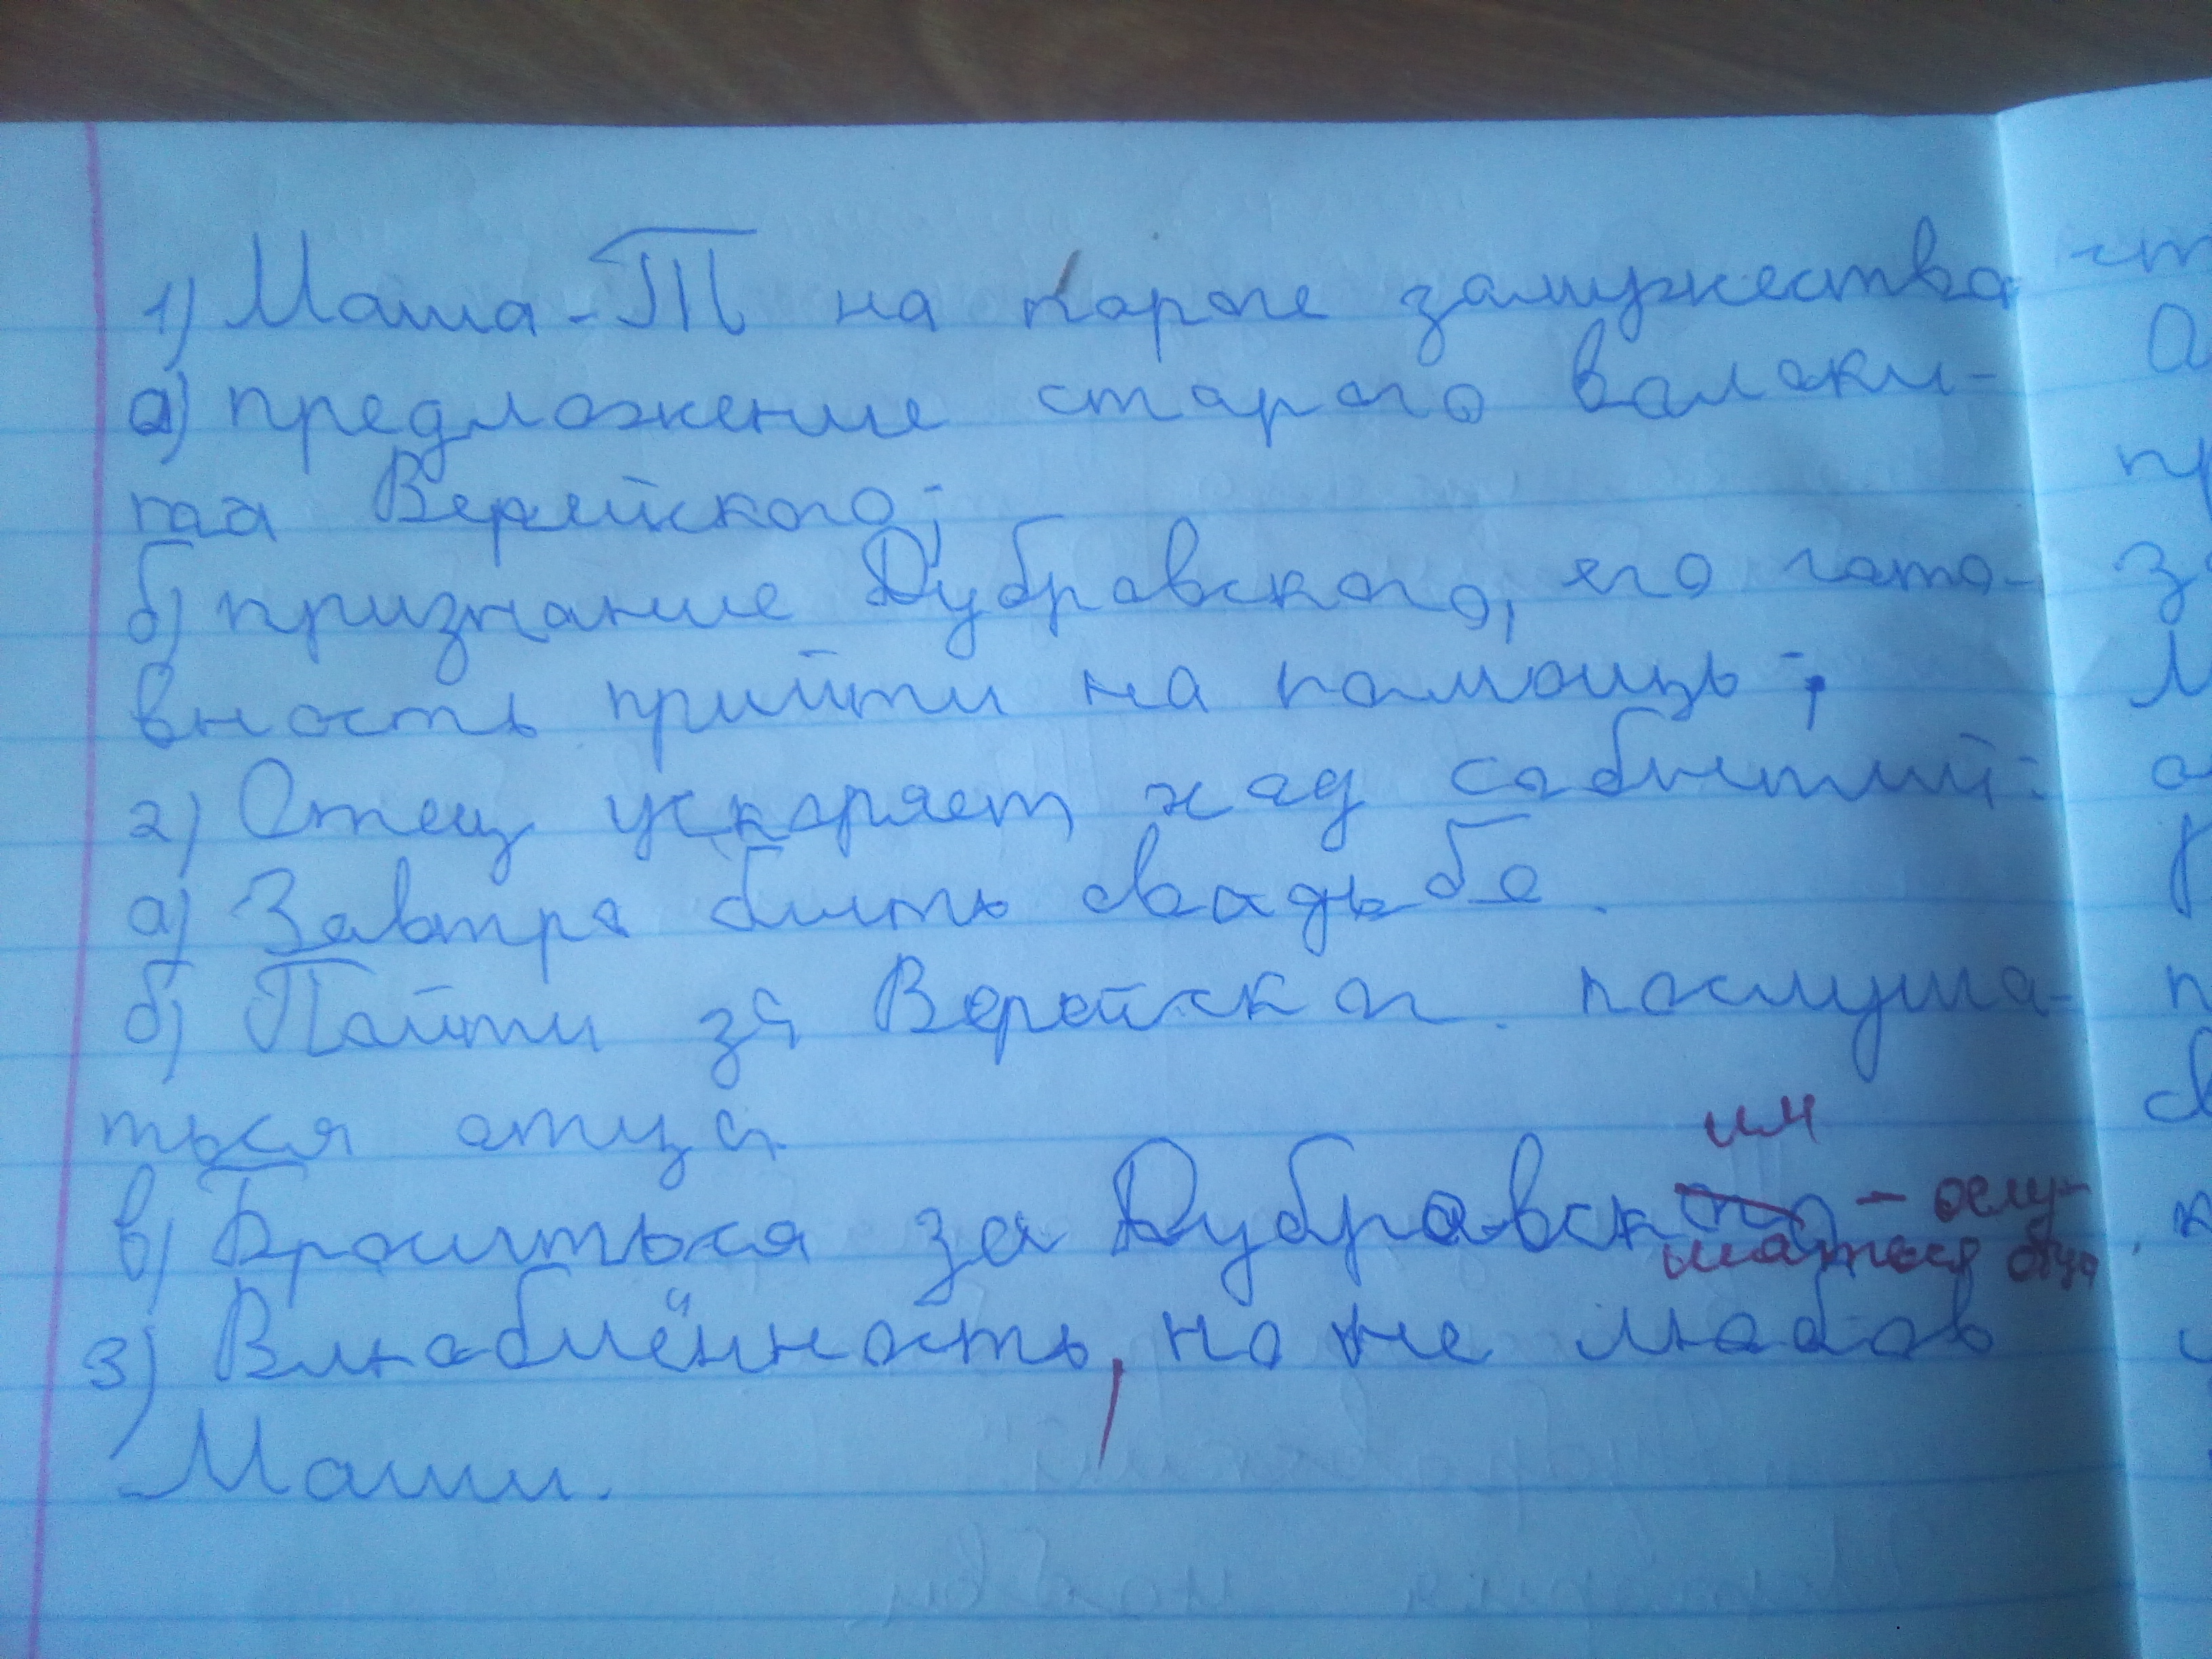 1) Маша-Т на пороге замужества
а) предложение старого волоки-
таа Верейского;
б) признание Дубровского, его гото-
вность прийти на помощь;
2) Отец ускоряет ход событий:
а) Завтра быть свадьбе.
б) Пойти за Верейског. послуша-
ться отца.
им
в) Броситься за Дубровского - ослу-
шаться отца
3) Влюблённость, но не любов
Маши.